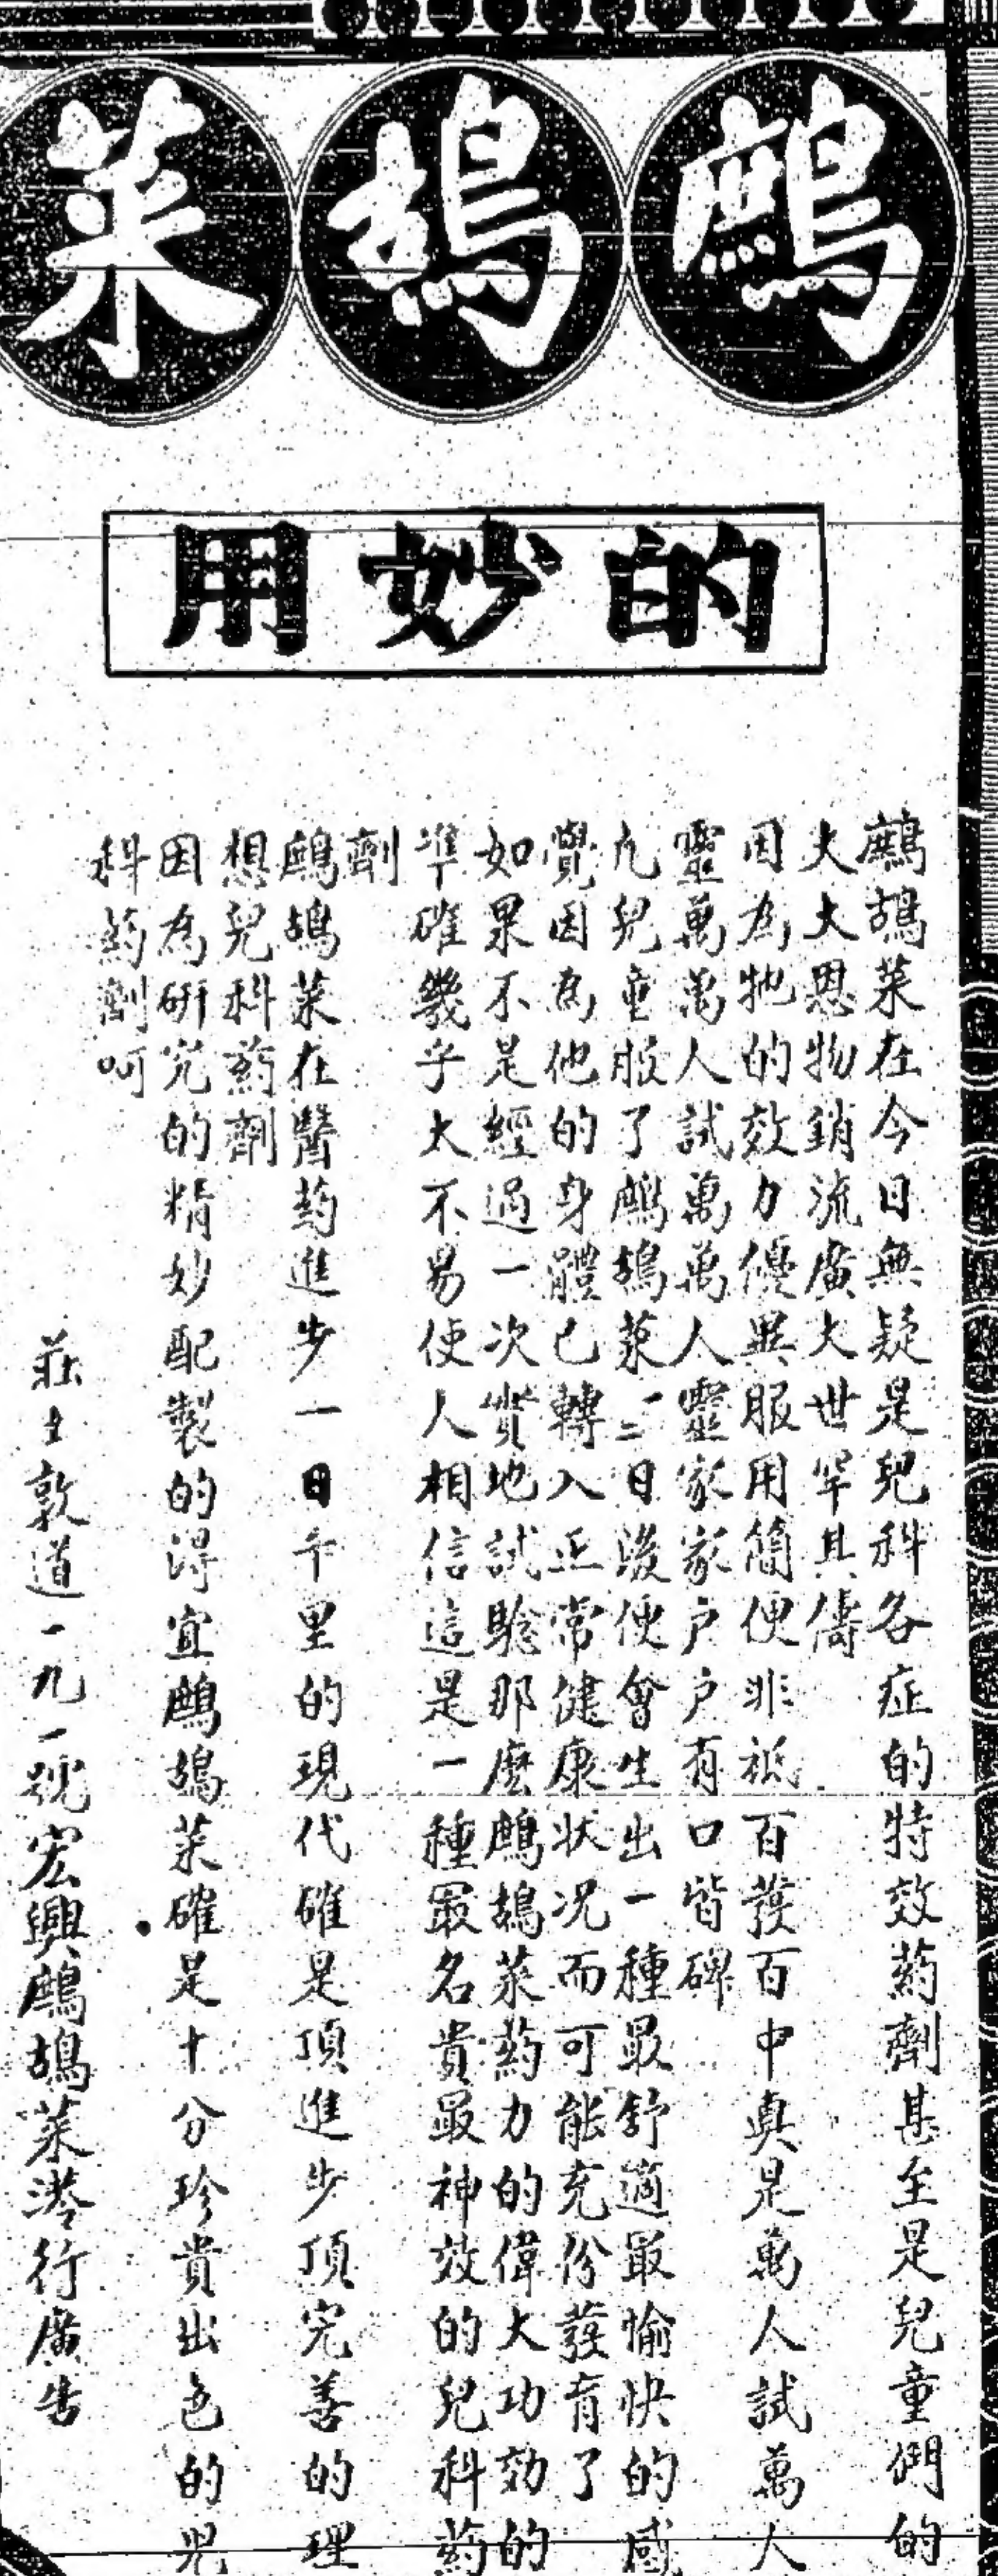 鷓鴣菜
的妙用
鷓鴣菜在今日無疑是兒科各症的特效葯劑甚至是兒童們的
大大恩物銷流廣大世罕其儔
因為牠的效力優異服用簡便非祇百發百中真是萬人試萬人
靈萬萬人試萬萬人靈家家户户有口皆碑
凡兒童服了鷓鴣菜一二日後便會生出一種最舒適最愉快的感
覺因為他的身體已轉入正常健康状况而可能充份發育了
如果不是經過一次實地試驗那麽鷓鴣菜葯力的偉大功効的
準確幾乎太不易使人相信這是一種最名貴最神效的兒科葯
劑
鷓鴣菜在醫葯進步一日千里的現代確是頂進步頂完善的理
想兒科葯劑
因為研究的精妙配製的得宜鷓鴣菜確是十分珍貴出色的兒
科葯劑呵
莊士敦道一九一號宏興鷓鴣菜港行廣告